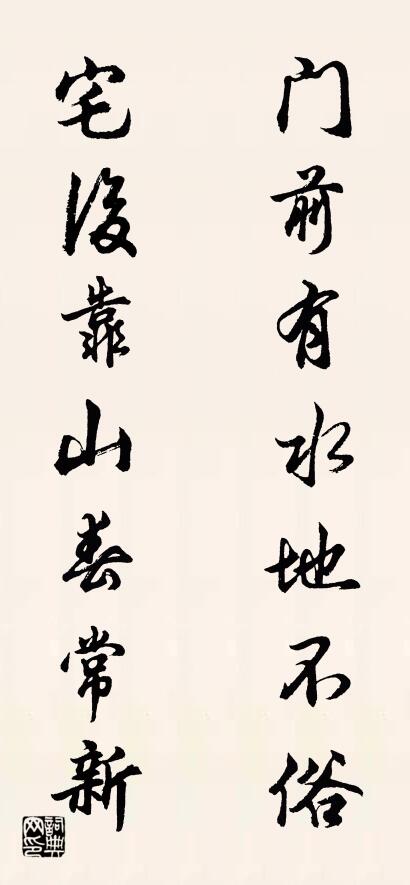 门前有水地不俗
宅後靠山春常新
詞典网印